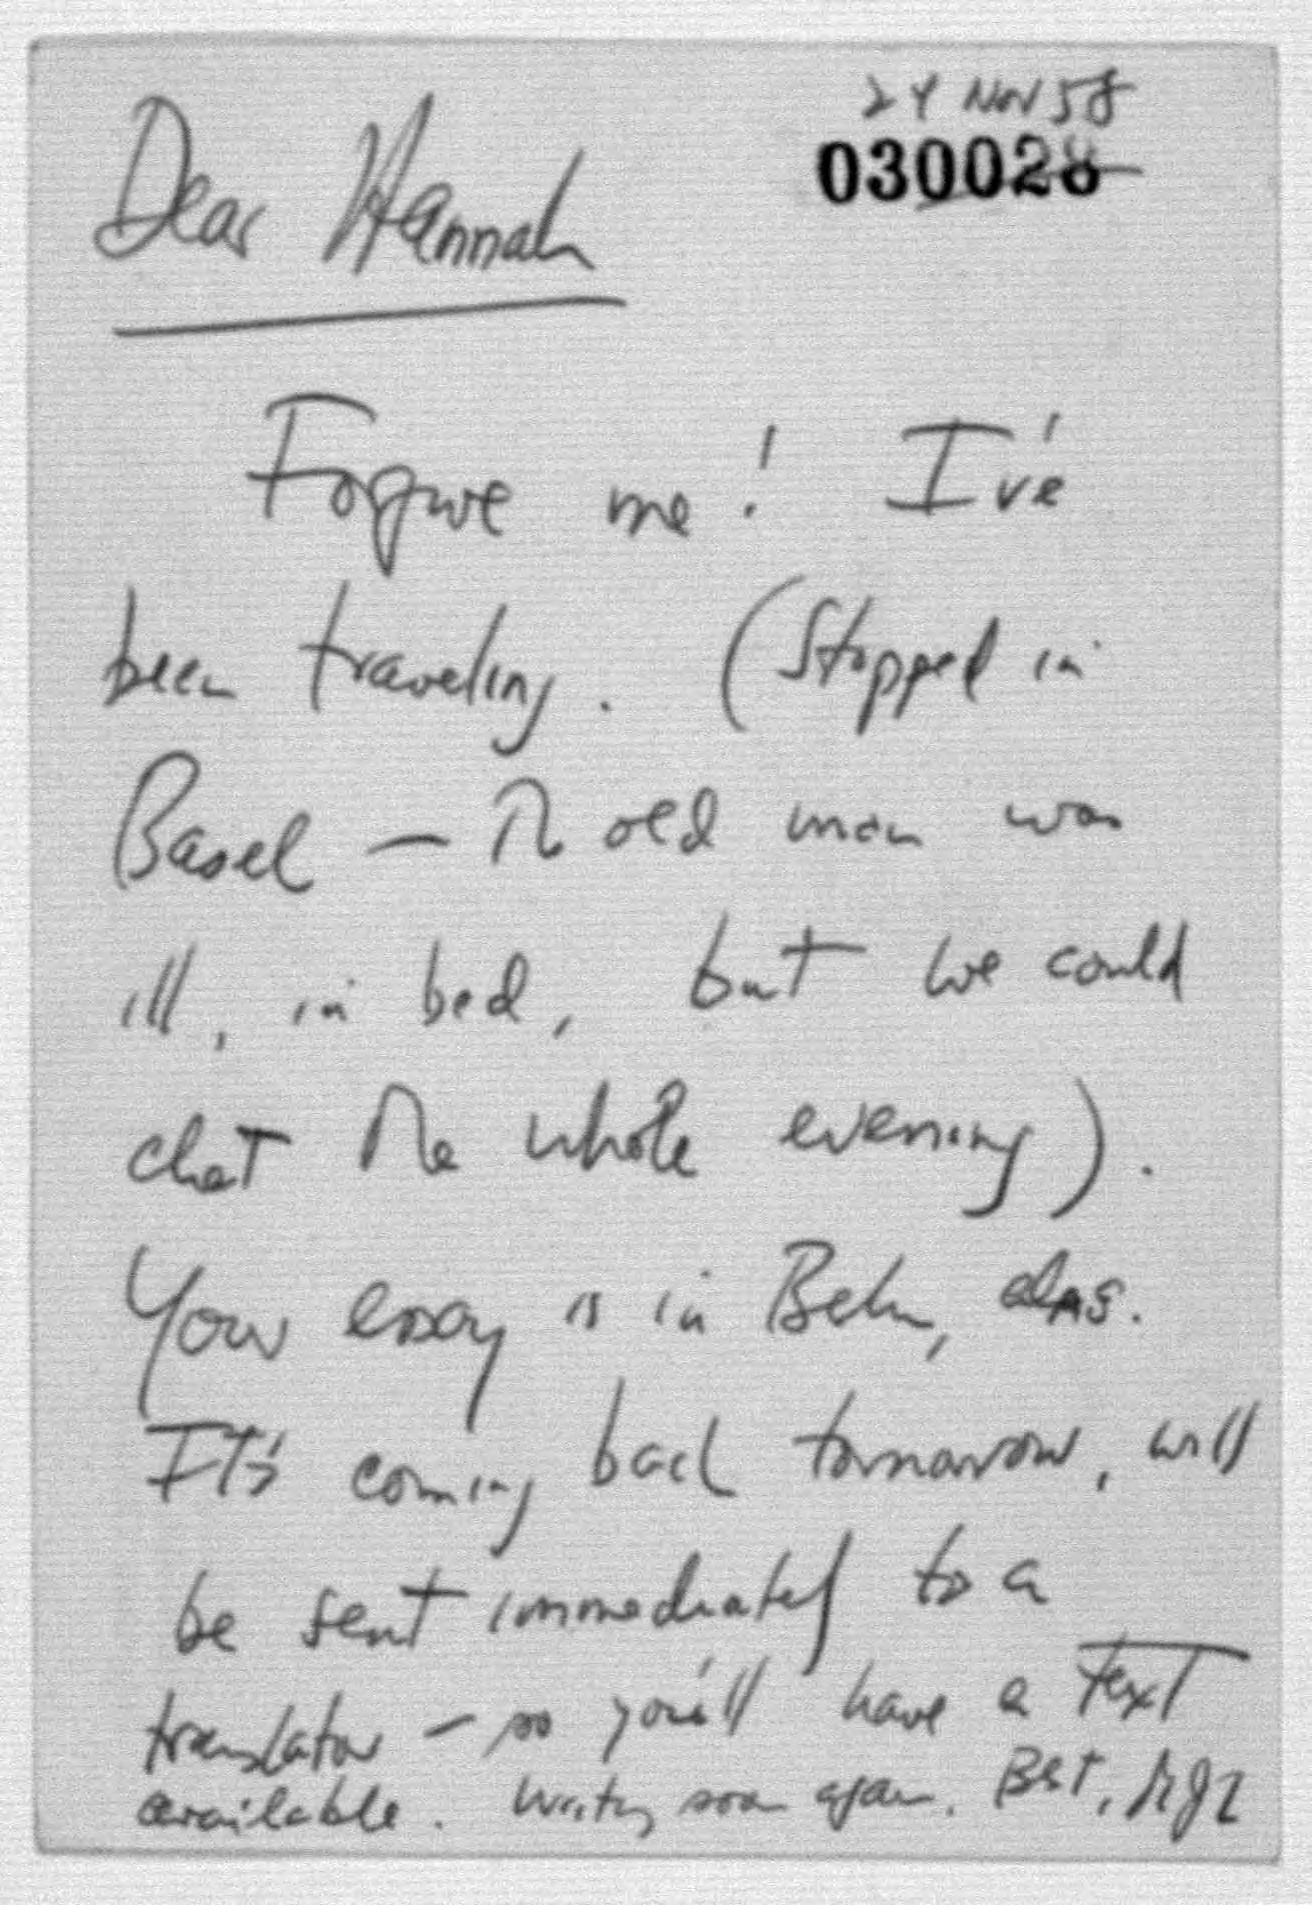 24 Nov 58
030028
Dear Hannah
Forgive me! I've
been traveling. (Stopped in
Basel — The old man was
ill, in bed, but we could
chat the whole evening).
Your essay is in Berlin, alas.
It's coming back tomorrow, will
be sent immediately to a
translator — so you'll have a text
available. Writing soon again. Best,